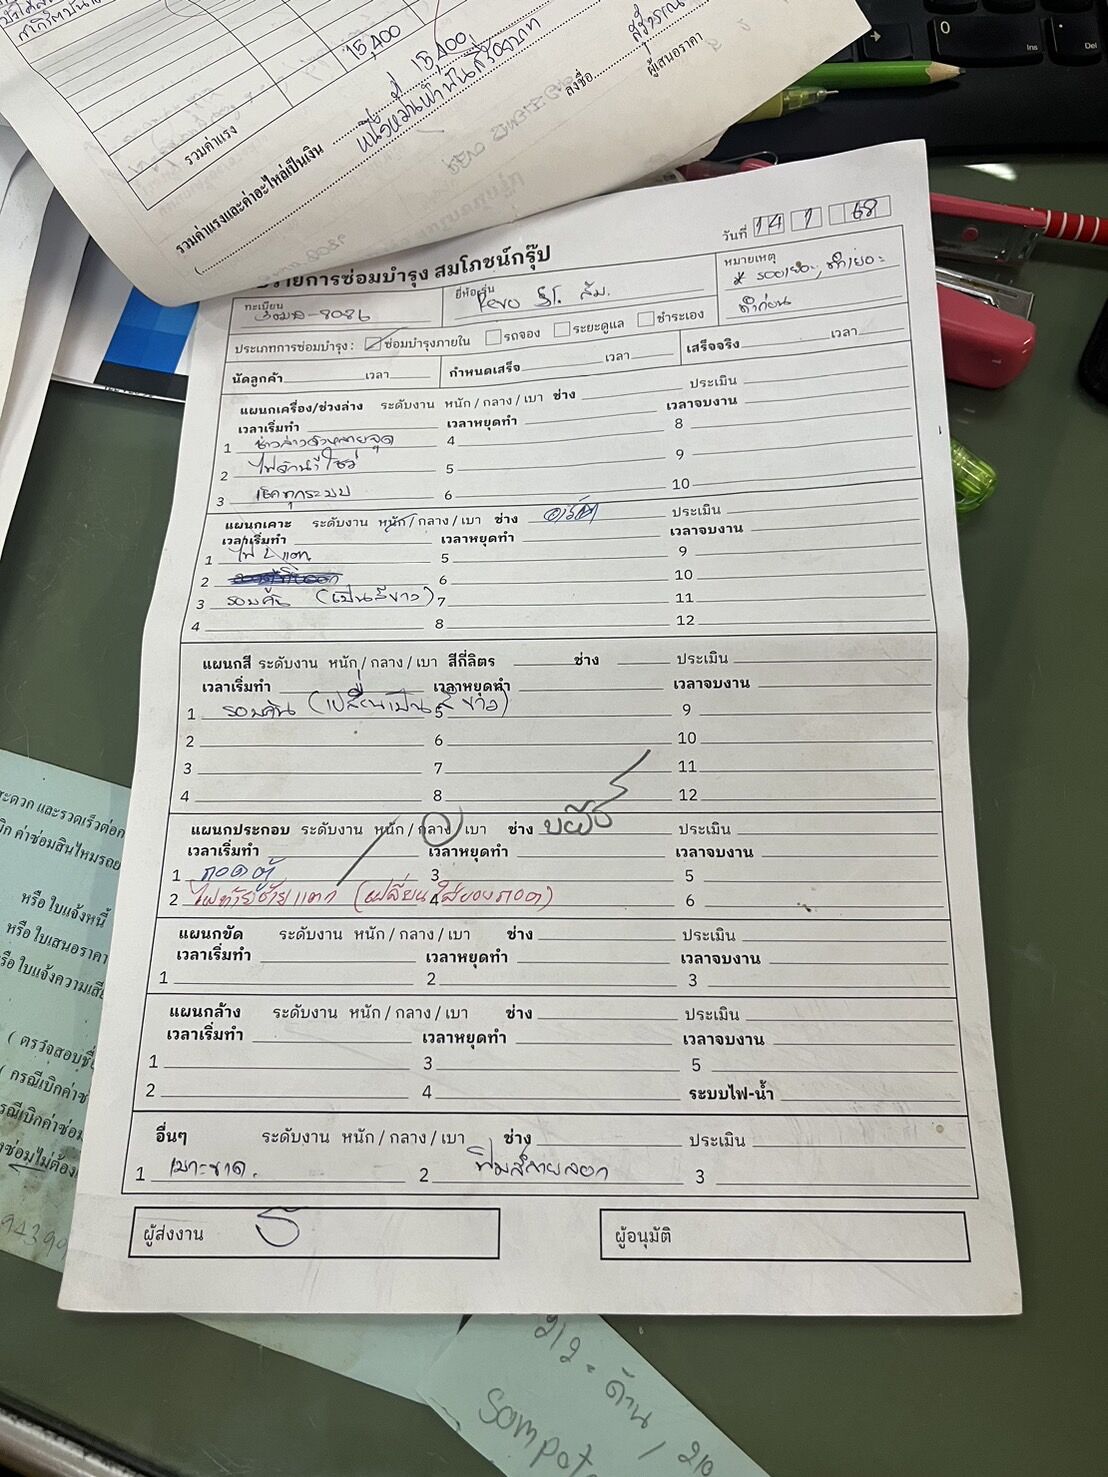 15,400
รวมค่าแรง
รวมค่าแรงและค่าอะไหล่เป็นเงิน 15,400
(หนึ่งหมื่นห้าพันสี่ร้อยบาท
ลงชื่อ
ผู้เสนอราคา
0
Ins
Del
วันที่ 14 1 68
รายการซ่อมบำรุง สมโภชน์กรุ๊ป
ทะเบียน
-8086
ยี่ห้อ/รุ่น
Revo ST. ส้ม.
หมายเหตุ
* รอเยอะ, ทำเยอะ
ทำก่อน
ประเภทการซ่อมบำรุง: ซ่อมบำรุงภายใน รถจอง ระยะดูแล ชำระเอง
นัดลูกค้า เวลา กำหนดเสร็จ เวลา เสร็จจริง เวลา
แผนกเครื่อง/ช่วงล่าง ระดับงาน หนัก/กลาง/เบา ช่าง ประเมิน
เวลาเริ่มทำ เวลาหยุดทำ เวลาจบงาน
1 4 8
2 5 9
3 เช็คทุกระบบ 6 10
แผนกเคาะ ระดับงาน หนัก/กลาง/เบา ช่าง ประเมิน
เวลาเริ่มทำ เวลาหยุดทำ เวลาจบงาน
1 5 9
2 6 10
3 รอบคัน (เป็นสีขาว) 7 11
4 8 12
แผนกสี ระดับงาน หนัก/กลาง/เบา สีกี่ลิตร ช่าง ประเมิน
เวลาเริ่มทำ เวลาหยุดทำ เวลาจบงาน
1 รอบคัน (เปลี่ยนเป็นสีขาว) 5 9
2 6 10
3 7 11
4 8 12
แผนกประกอบ ระดับงาน หนัก/กลาง/เบา ช่าง ประเมิน
เวลาเริ่มทำ เวลาหยุดทำ เวลาจบงาน
1 ถอดตู้ 3 5
2 ไฟท้ายซ้ายแตก (เปลี่ยนใส่ของถอด) 4 6
แผนกขัด ระดับงาน หนัก/กลาง/เบา ช่าง ประเมิน
เวลาเริ่มทำ เวลาหยุดทำ เวลาจบงาน
1 2 3
แผนกล้าง ระดับงาน หนัก/กลาง/เบา ช่าง ประเมิน
เวลาเริ่มทำ เวลาหยุดทำ เวลาจบงาน
1 3 5
2 4 ระบบไฟ-น้ำ
อื่นๆ ระดับงาน หนัก/กลาง/เบา ช่าง ประเมิน
1 เบาะขาด. 2 ฟิล์มลายลอก 3
ผู้ส่งงาน
ผู้อนุมัติ
สะดวก และรวดเร็วต่อ
เบิก ค่าซ่อมสินไหมรถ
หรือ ใบแจ้งหนี้
หรือ ใบเสนอราคา
หรือ ใบแจ้งความเสีย
( ตรวจสอบ
( กรณีเบิกค่าซ่
กรณีเบิกค่าซ่อม
ซ่อมไม่ต้อง
9439
2/2 - ด้าน / 2/0
Sompot